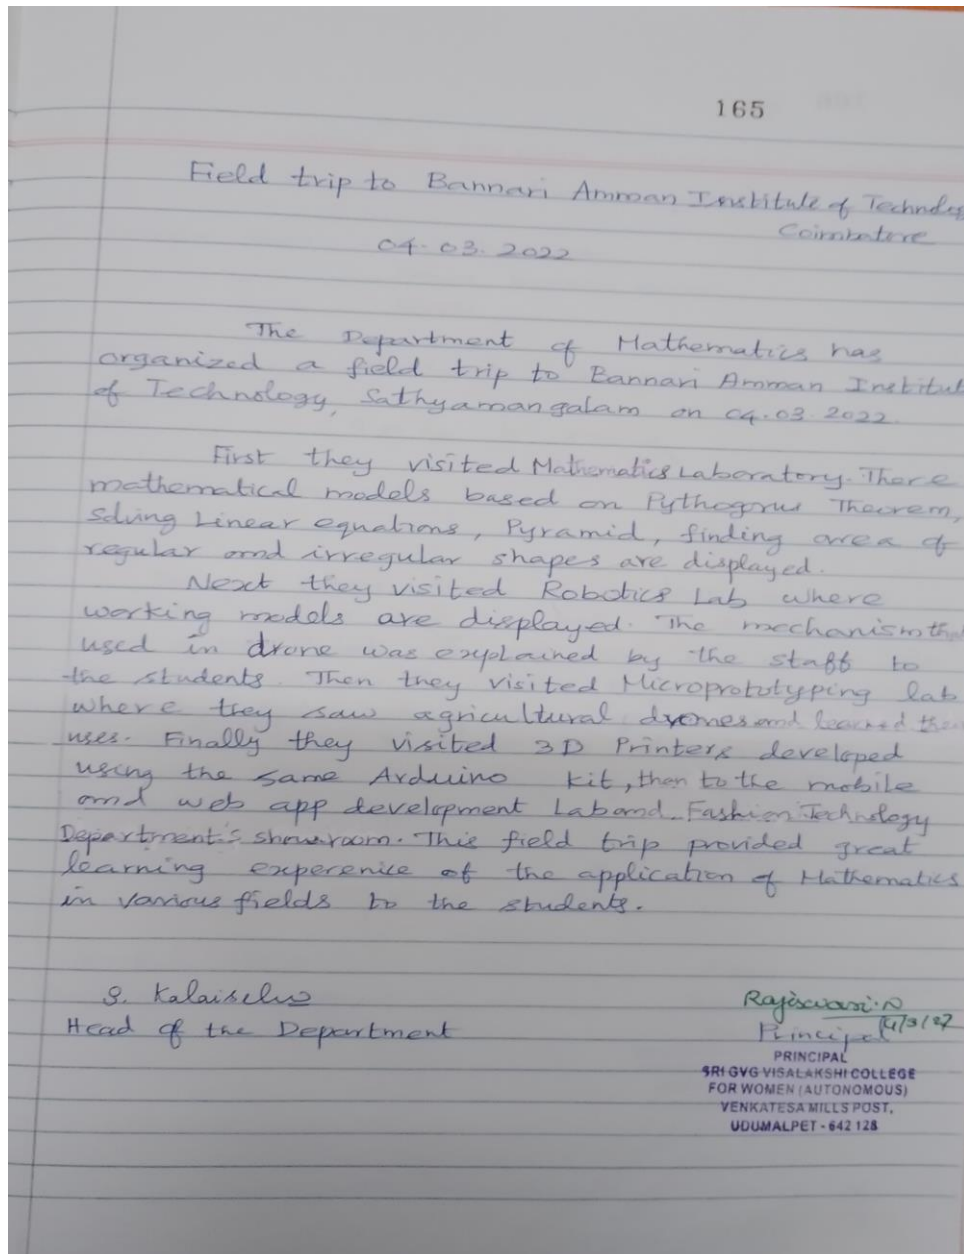 165
Field trip to Bannari Amman Institute of Technolog
Coimbatore
04.03.2022
The Department of Mathematics has
organized a field trip to Bannari Amman Institut
of Technology, Sathyamangalam on 04.03.2022.
First they visited Mathematics Laboratory. There
mathematical models based on Pythogorus Theorem,
Solving Linear equations, Pyramid, finding area of
regular and irregular shapes are displayed.
Next they visited Robotics Lab where
working models are displayed. The mechanism tha
used in drone was explained by the staff to
the students. Then they visited Microprototyping lab
where they saw agricultural drones and learned their
uses. Finally they visited 3D Printers developed
using the same Arduino kit, then to the mobile
and web app development Lab and Fashion Technology
Department's showroom. This field trip provided great
learning experenice of the application of Mathematics
in various fields to the students.
S. Kalaiselvi
Head of the Department
Rajeswari.N
Principal
PRINCIPAL
SRI GVG VISALAKSHI COLLEGE
FOR WOMEN (AUTONOMOUS)
VENKATESA MILLS POST,
UDUMALPET - 642 128